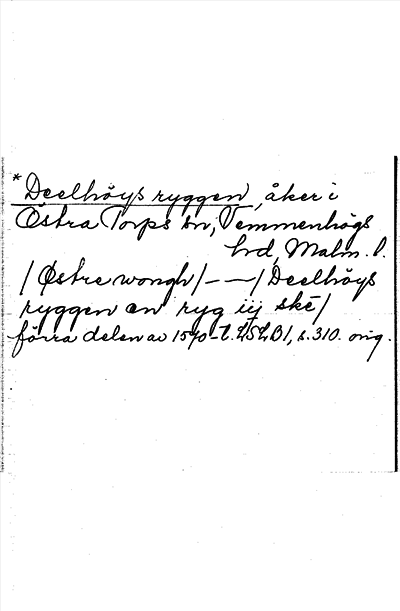 * Deelhöys ryggen, åker i
Östra Torps sn, Vemmenhögs
hrd, Malm. l.
/ Østre wongh / – – / Deelhöys
ryggen en ryg iij skē /
förra delen av 1570-t. LSLB1, s. 310. orig.